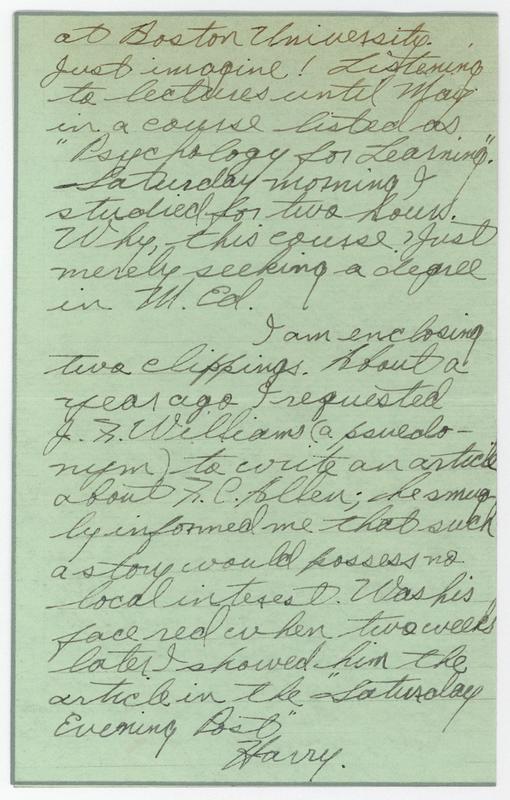 at Boston University.
Just imagine! Listening
to lectures until May
in a course listed as
"Psychology for Learning".
Saturday morning I
studied for two hours.
Why, this course? Just
merely seeking a degree
in M. Ed.
I am enclosing
two clippings. About a
year ago I requested
J. F. Williams (a psuedo-
nym) to write an article
about F. C. Allen; he smug-
ly informed me that such
a story would possess no
local interest. Was his
face red when two weeks
later I showed him the
article in the "Saturday
Evening Post"
Harry.